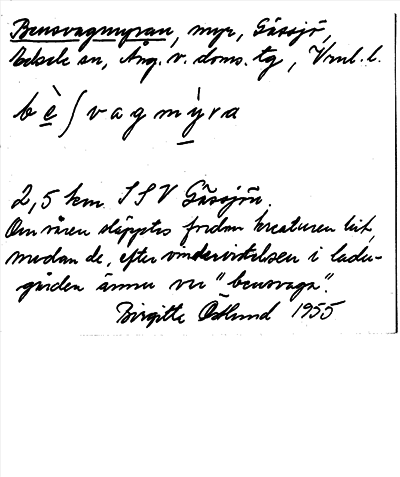 Bensvagmyran, myr, Gässjö,
Ångr. v. doms. tg, Vnl. l.
bè∫vagmỳra
2,5 km SSV Gässjön.
Om våren släpptes fordom kreaturen hit,
medan de, efter vintervistelsen i ladu-
gården ännu voro "bensvaga".
Birgitte Östlund 1955